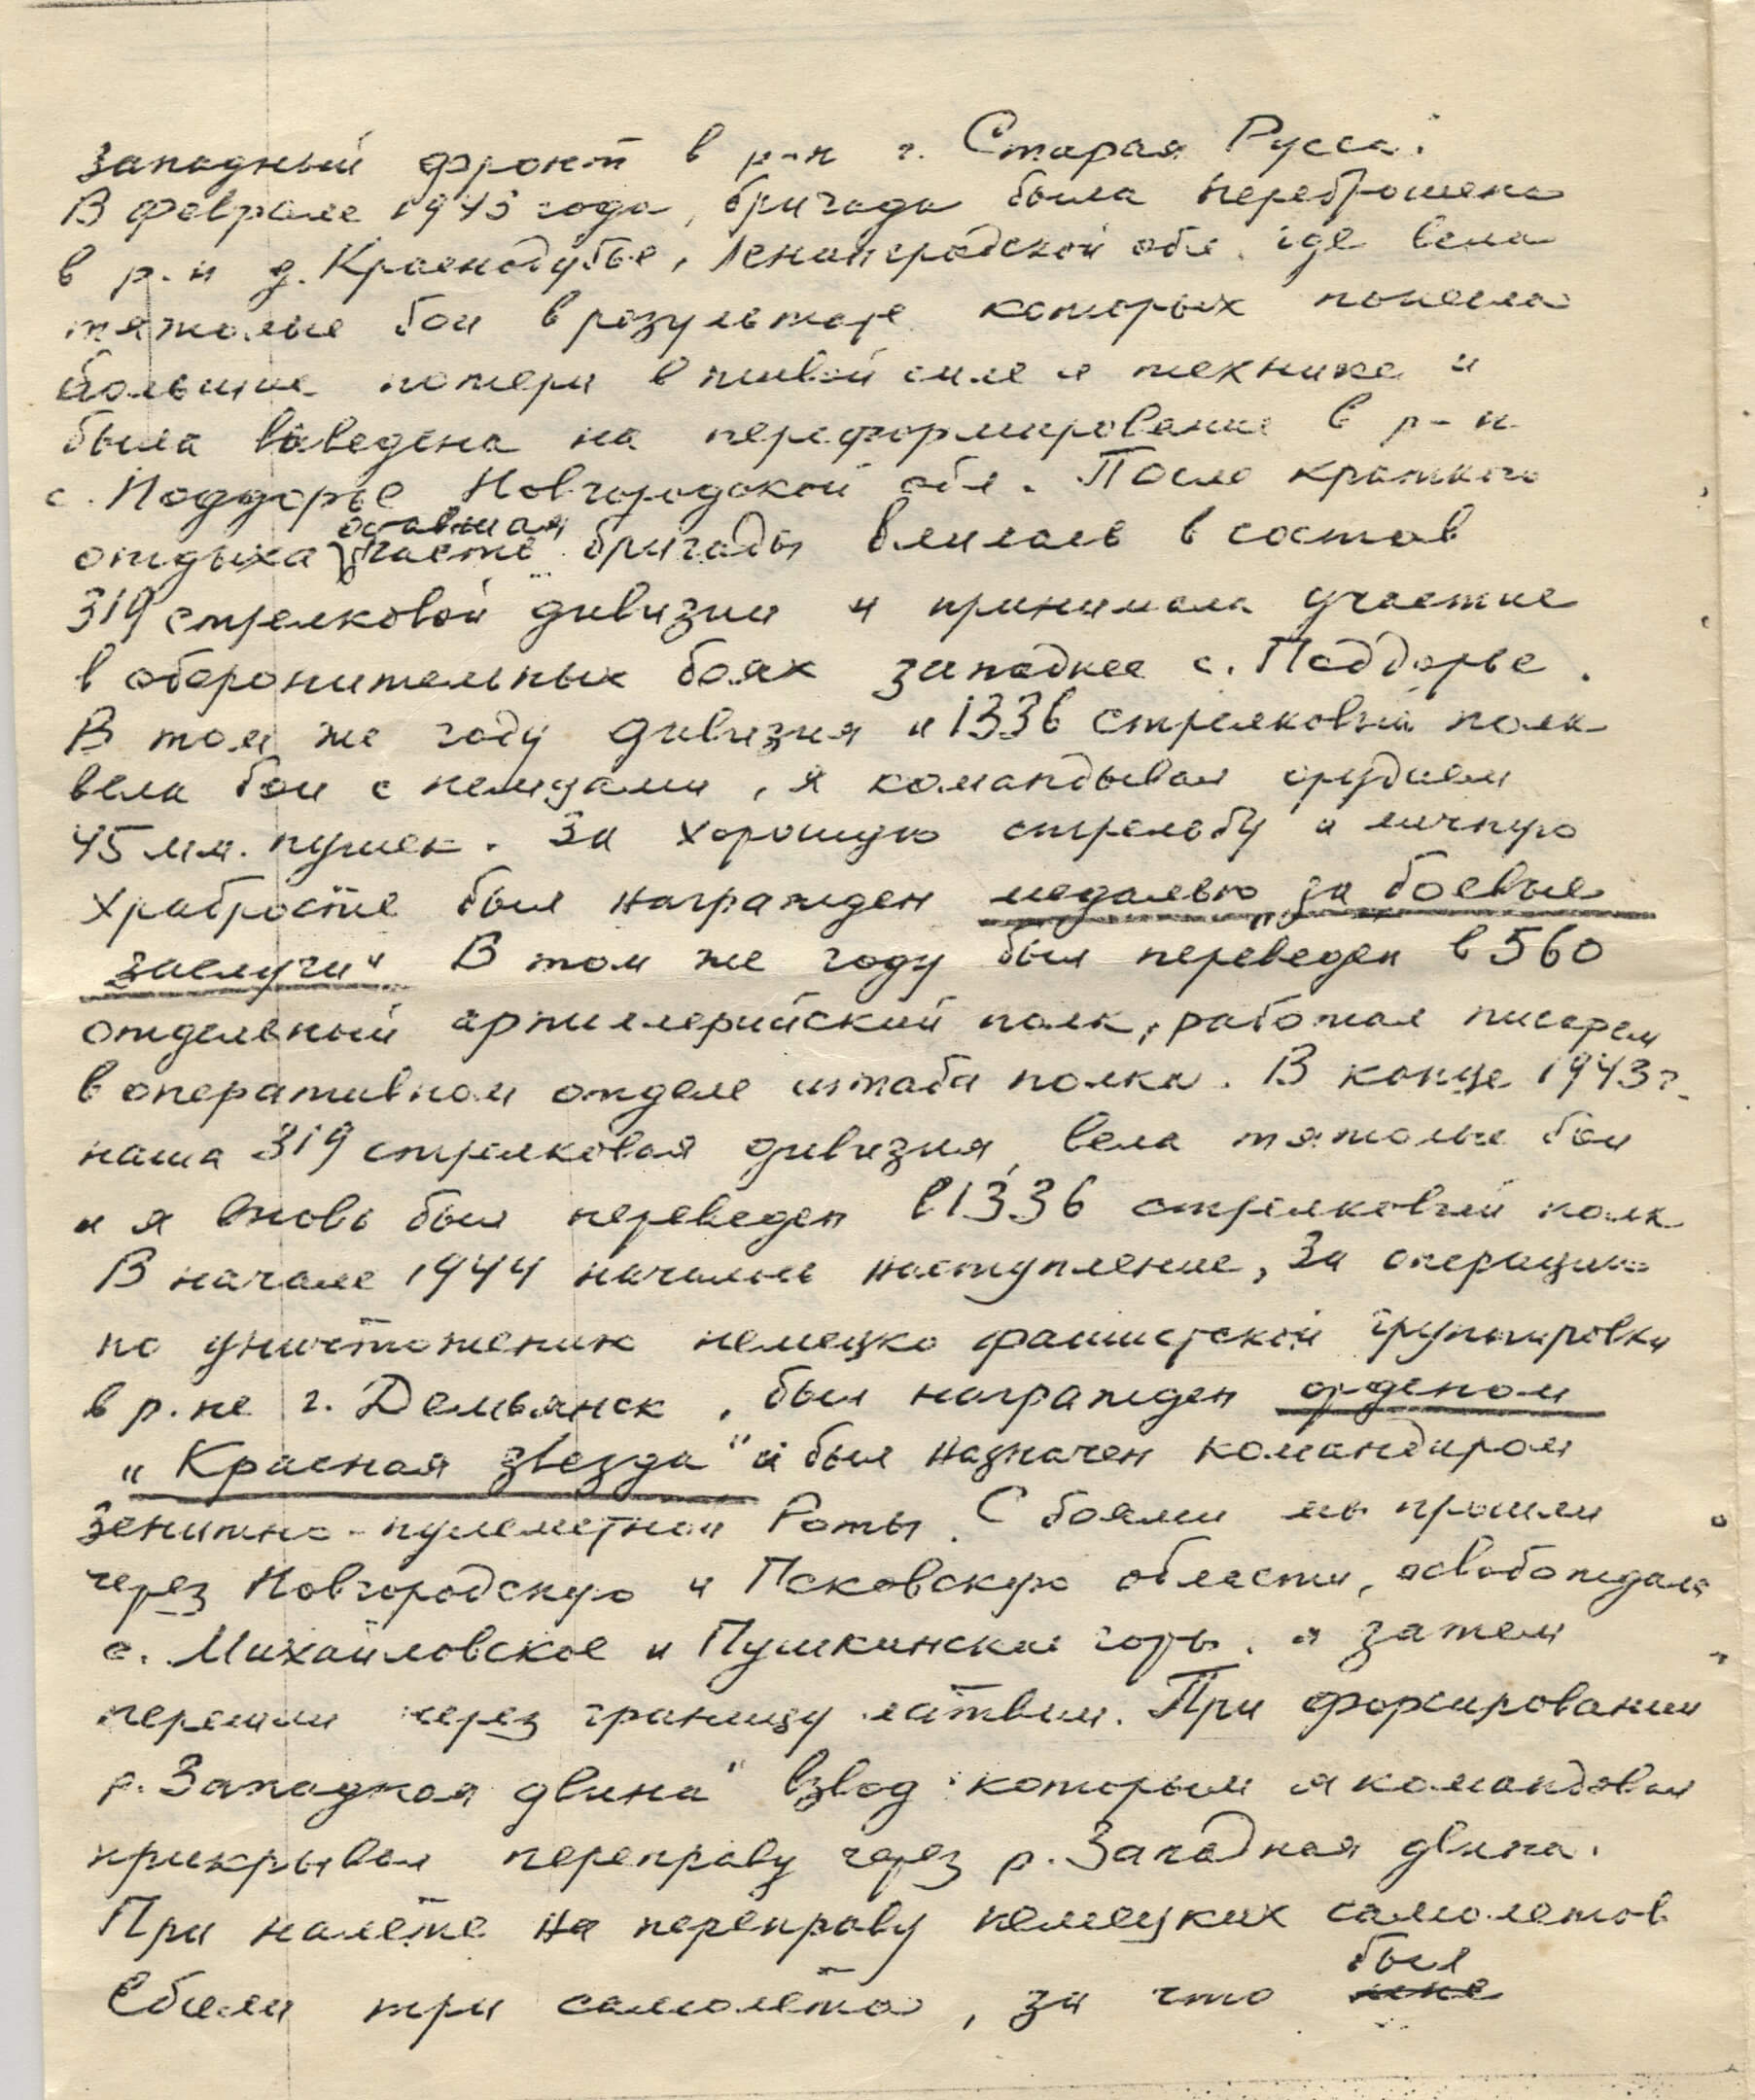 западный фронт в р-н г. Старая Русса.
В феврале 1943 года, бригада была переброшена
в р-н д. Краснодубье, Ленинградской обл. где вела
тяжолые бои в результате которых понесла
большие потери в живой силе и технике и
была выведена на переформирование в р-н
с. Поддорье Новгородской обл. После краткого
оставшая
отдыха часть бригады влилась в состав
319 стрелковой дивизии и принимала участие
в оборонительных боях западнее с. Поддорье.
В том же году дивизия и 1336 стрелковый полк
вели бои с немцами, я командывал орудием
45 мм. пушек. За хорошую стрельбу и личную
храбрость был награжден медалью „за боевые
заслуги" В том же году был переведен в 560
отдельный артиллерийский полк, работал писарем
в оперативном отделе штаба полка. В конце 1943 г.
наша 319 стрелковая дивизия, вела тяжолые бои
и я вновь был переведен в 1336 стрелковый полк
В начале 1944 началось наступление, За операцию
по уничтожению немецко фашистской группировки
в р-не г. Демьянск, был награжден орденом
„Красная звезда" и был назначен командиром
Зенитно-пулеметной Роты. С боями мы прошли
через Новгородскую и Псковскую области, освобождали
с. Михайловское и Пушкинские горы. и затем
перешли через границу латвии. При форсировании
р. Западная двина" взвод которым я командовал
прикрывал переправу через р. Западная двина.
При налёте на переправу немецких самолетов
сбили три самолёта, за что был
мне